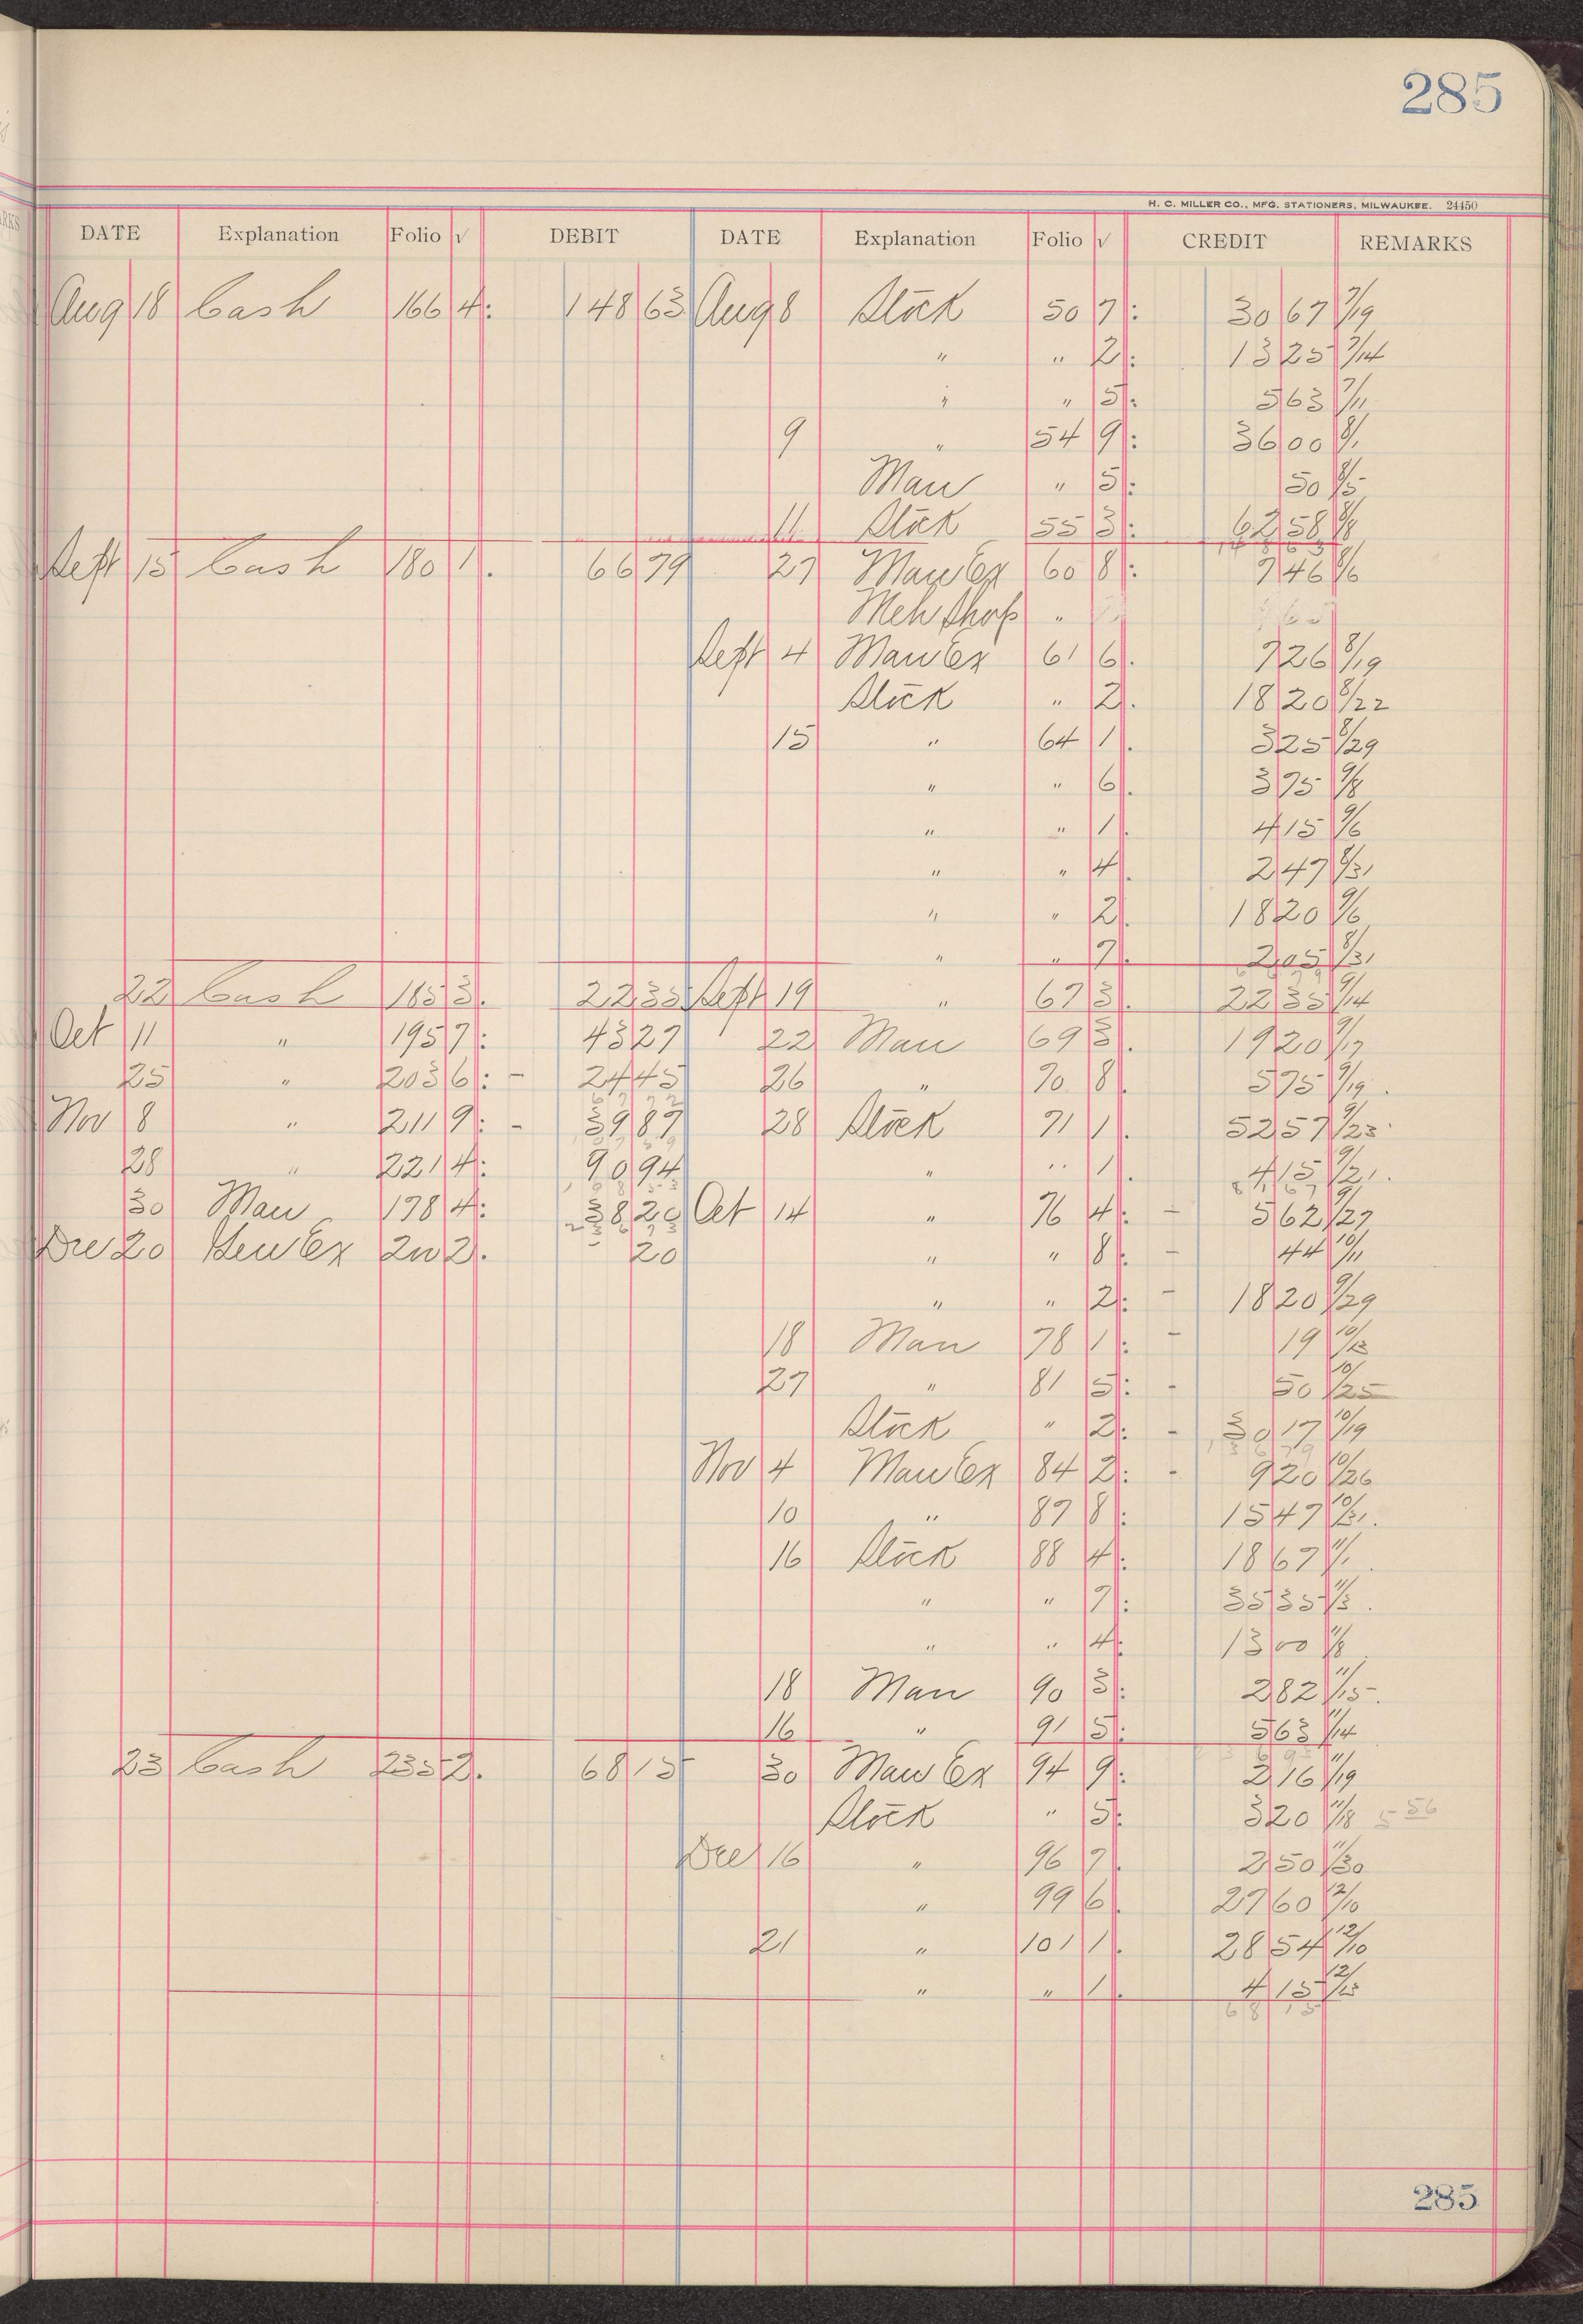 285
H. C. MILLER CO., MFG. STATIONERS, MILWAUKEE. 24450
DATE Explanation Folio √ DEBIT DATE Explanation Folio √ CREDIT REMARKS
Aug 18 Cash 166 4: 148 63 Aug 8 Stock 50 7: 30 67 7/19
" " 2: 13 25 7/14
" " 5: 5 63 7/11
9 " 54 9: 36 00 8/1
Man " 5: 50 8/5
11 Stock 55 3: 62 58 8/8
Sept 15 Cash 180 1. 66 79 27 Man Ex 60 8: 7 46 8/6
Meh Shop "
Sept 4 Man Ex 61 6. 7 26 8/19
Stock " 2. 18 20 8/22
15 " 64 1. 3 25 8/29
" " 6. 3 75 9/8
" " 1. 4 15 9/6
" " 4. 2 47 8/31
" " 2. 18 20 9/6
" " 7. 2 05 8/31
22 Cash 185 3. 22 35 Sept 19 " 67 3. 22 35 9/14
Oct 11 " 195 7: 43 27 22 Man 69 3. 19 20 9/17
25 " 203 6: - 24 45 26 " 70 8. 5 75 9/19.
Nov 8 " 211 9: - 39 87 28 Stock 71 1. 52 57 9/23
28 " 221 4: 90 94 " " 1. 4 15 9/21.
30 Man 178 4: 38 20 Oct 14 " 76 4: - 5 62 9/27
Dec 20 Gen Ex 2w 2. 20 " " 8: - 44 10/11
" " 2: - 18 20 9/29
18 Man 78 1: - 19 10/13
27 " 81 5: - 50 10/25
Stock " 2: - 30 17 10/19
Nov 4 Man Ex 84 2: - 9 20 10/26
10 " 87 8: 15 47 10/31.
16 Stock 88 4: 18 67 11/1.
" " 7: 35 35 11/3.
" " 4: 13 00 11/8
18 Man 90 3: 2 82 11/15.
16 " 91 5: 5 63 11/14
23 Cash 235 2. 68 15 30 Man Ex 94 9: 2 16 11/19
Stock " 5: 3 20 11/18 5 56
Dec 16 " 96 7. 2 50 11/30
" 99 6. 27 60 12/10
21 " 101 1. 28 54 12/10
" " 1. 4 15 12/15
68 15
285